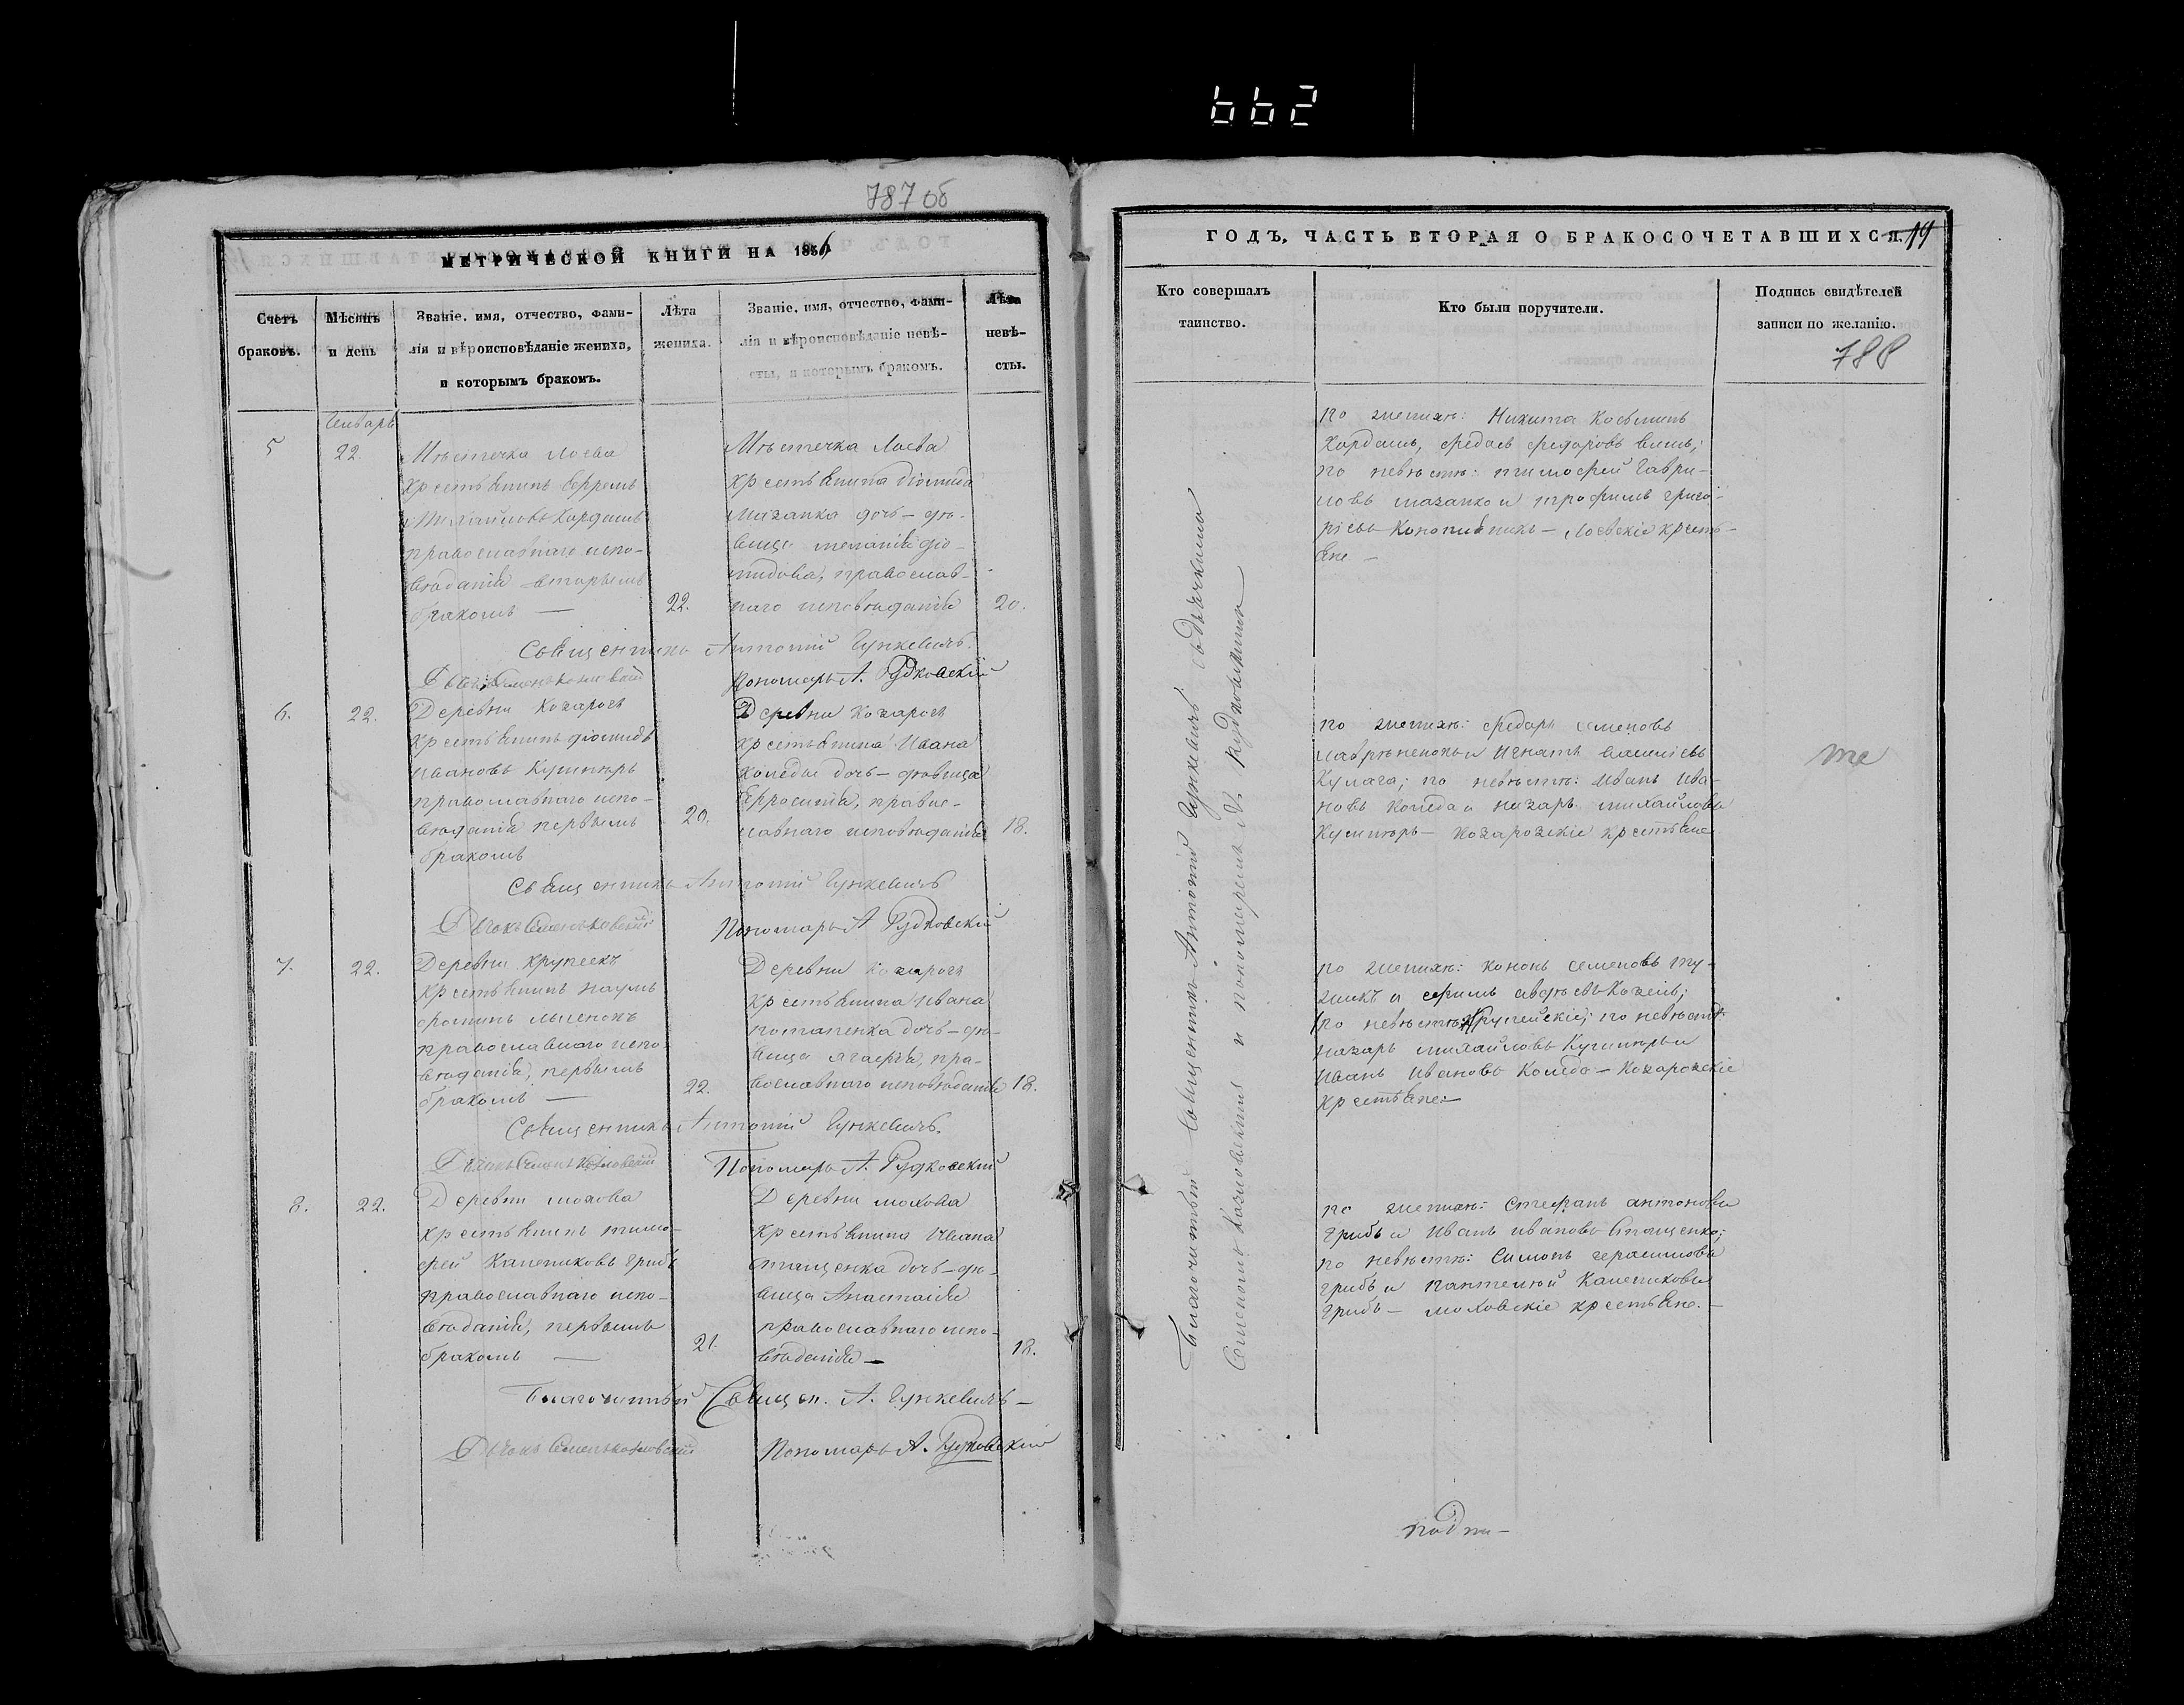 662
787 об
МЕТРИЧЕСКОЙ КНИГИ НА 1856
Счетъ
браковъ.
Мѣсяцъ
и день
Званіе, имя, отчество, фами-
лія и вѣроисповѣданіе жениха,
и которымъ бракомъ.
Лѣта
жениха.
Званіе, имя, отчество, фами-
лія и вѣроисповѣданіе невѣ-
сты, и которымъ бракомъ.
Лѣта
невѣ-
сты.
Генварь
5
22.
Мѣстечка Лоева
крестьянинъ Ефремъ
Михайловъ Кордашъ
православнаго испо-
вѣданія вторымъ
бракомъ —
22.
Мѣстечка Лоева
крестьянина Діомида
Мазанка дочь – дѣ-
вица Меланія Діо-
мидова, православ-
наго исповѣданія
20.
Священникъ Антоній Гункевичъ.
Пономарь А. Рудковскій
6.
22.
Деревни Козарогъ
крестьянинъ Діомидъ
Ивановъ
православнаго испо-
вѣданія первымъ
бракомъ
20.
Деревни Козарогъ
крестьянина Ивана
Коледы дочь – дѣвица
Ефросинія, правос-
лавнаго исповѣданія
18.
Священникъ Антоній Гункевичъ
Дьячекъ
Пономарь А Рудковскій
7.
22.
Деревни Крупеекъ
крестьянинъ Наумъ
православнаго испо-
вѣданія, первымъ
бракомъ —
22.
Деревни Козарогъ
крестьянина Ивана
Потапенка дочь – дѣ-
вица Агафія, пра-
вославнаго исповѣданія
18.
Священникъ Антоній Гункевичъ.
Пономарь А. Рудковскій
8.
22.
Деревни Мохова
крестьянинъ Тимо-
фей Калениковъ Грибъ
православнаго испо-
вѣданія, первымъ
бракомъ —
21.
Деревни Мохова
крестьянина Ивана
дочь – дѣ-
вица Анастасія
православнаго испо-
вѣданія —
18.
Благочинный Священ. А. Гункевичъ –
Пономарь А. Рудковскій
ГОДЪ, ЧАСТЬ ВТОРАЯ О БРАКОСОЧЕТАВШИХСЯ. 19
Кто совершалъ
таинство.
Кто были поручители.
Подпись свидѣтелей
записи по желанію.
788
Благочинный Священникъ Антоній Гункевичъ съ дьячкомъ
и пономаремъ А. Рудковскимъ
по женихѣ: Никита Косьминъ
Кордашъ, Федосъ Федоровъ
по невѣстѣ: Тимофей Гаври-
ловъ Мазанко и Трофимъ Григо-
рьевъ Коноплянникъ – Лоевскіе кресть-
яне –
по женихѣ: Федоръ Семеновъ
Лавриненокъ и Игнатъ Василіевъ
Кулага; по невѣстѣ: Иванъ Ива-
новъ Коледа и Назаръ Михайловъ
– Козарожскіе крестьяне
те
по женихѣ: Кононъ Семеновъ
по невѣстѣ Крупейскіе; по невѣстѣ
Назаръ Михайловъ
Иванъ Ивановъ Коледа – Козарожскіе
крестьяне –
по женихѣ: Стефанъ Антоновъ
Грибъ и Иванъ Ивановъ
по невѣстѣ: Симонъ Герасимовъ
Грибъ и Пантелей Калениковъ
Грибъ – Моховскіе крестьяне. –
подпи –